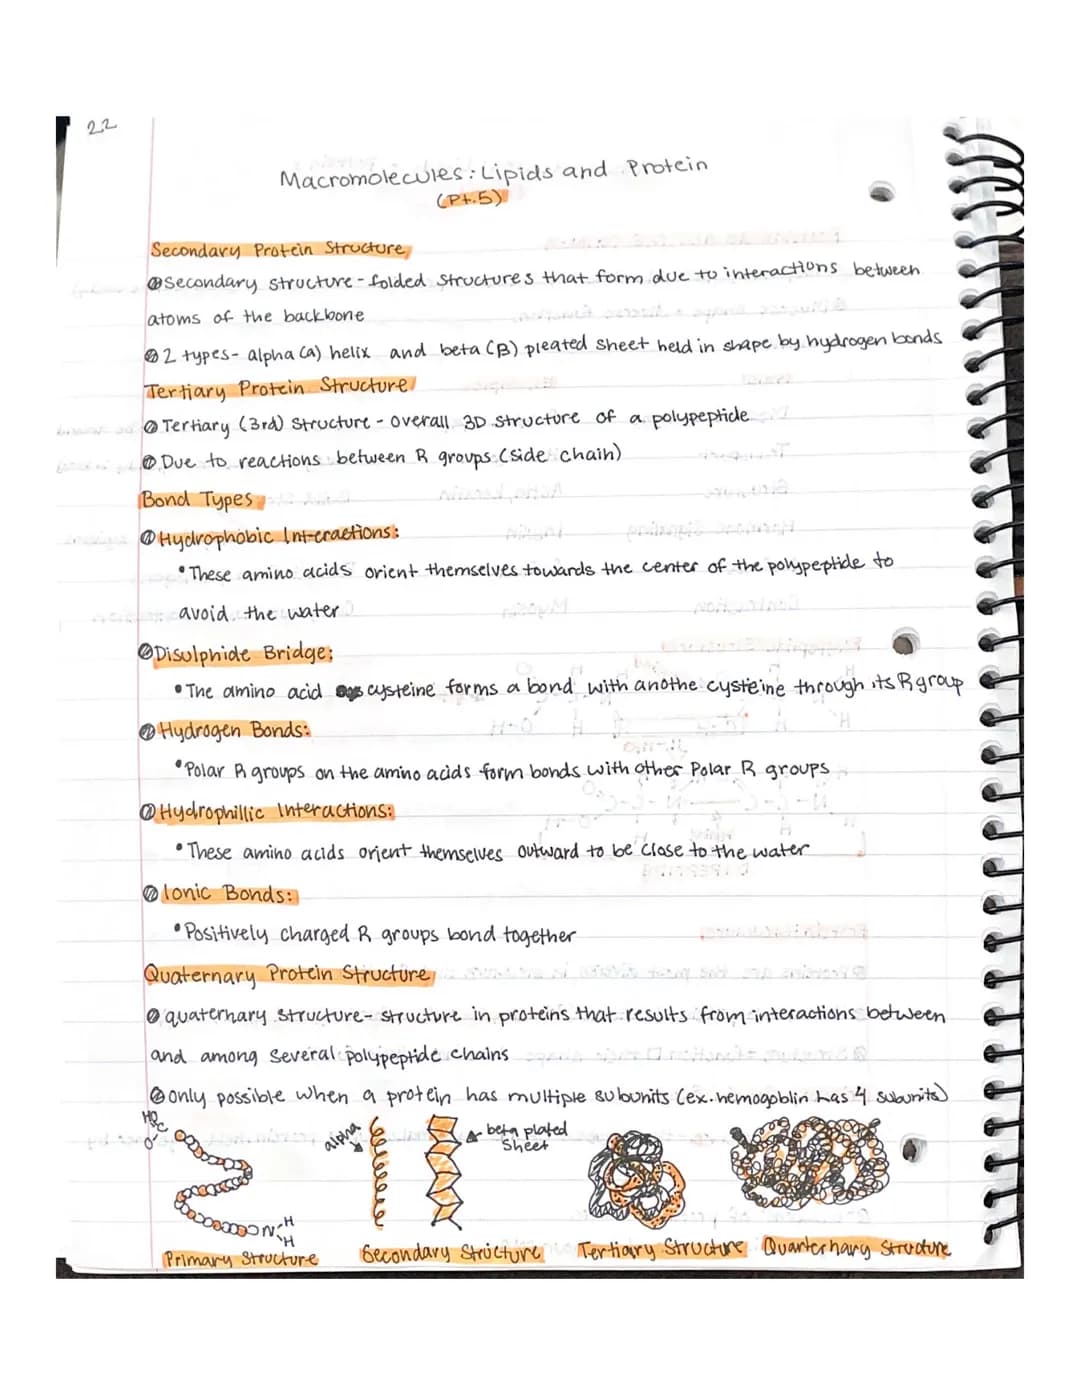 2.2
Macromolecules: Lipids and Protein
(Pt.5)
Secondary Protein Structure
Secondary structure - folded structures that form due to interactions between
atoms of the backbone
2 types- alpha (a) helix and beta (B) pleated sheet held in shape by hydrogen bonds
Tertiary Protein Structure
Tertiary (3rd) Structure - Overall 3D structure of a polypeptide
Due to reactions between R groups (side chain)
Bond Types
Hydrophobic Interactions:
• These amino acids orient themselves towards the center of the polypeptide to
avoid the water
Disulphide Bridge:
• The amino acid cysteine forms a bond with anothe cysteine through its R group
Hydrogen Bonds:
• Polar R groups on the amino acids form bonds with other Polar R groups
Hydrophillic Interactions:
• These amino acids orient themselves outward to be close to the water
Ionic Bonds:
• Positively charged R groups bond together
Quaternary Protein Structure
quaternary structure- structure in proteins that results from interactions between
and among several polypeptide chains
only possible when a protein has multiple subunits (ex. hemogoblin has 4 subunits)
alpha
beta plated
sheet
N-H
H
Primary Structure Secondary Structure Tertiary Structure Quarternary Structure